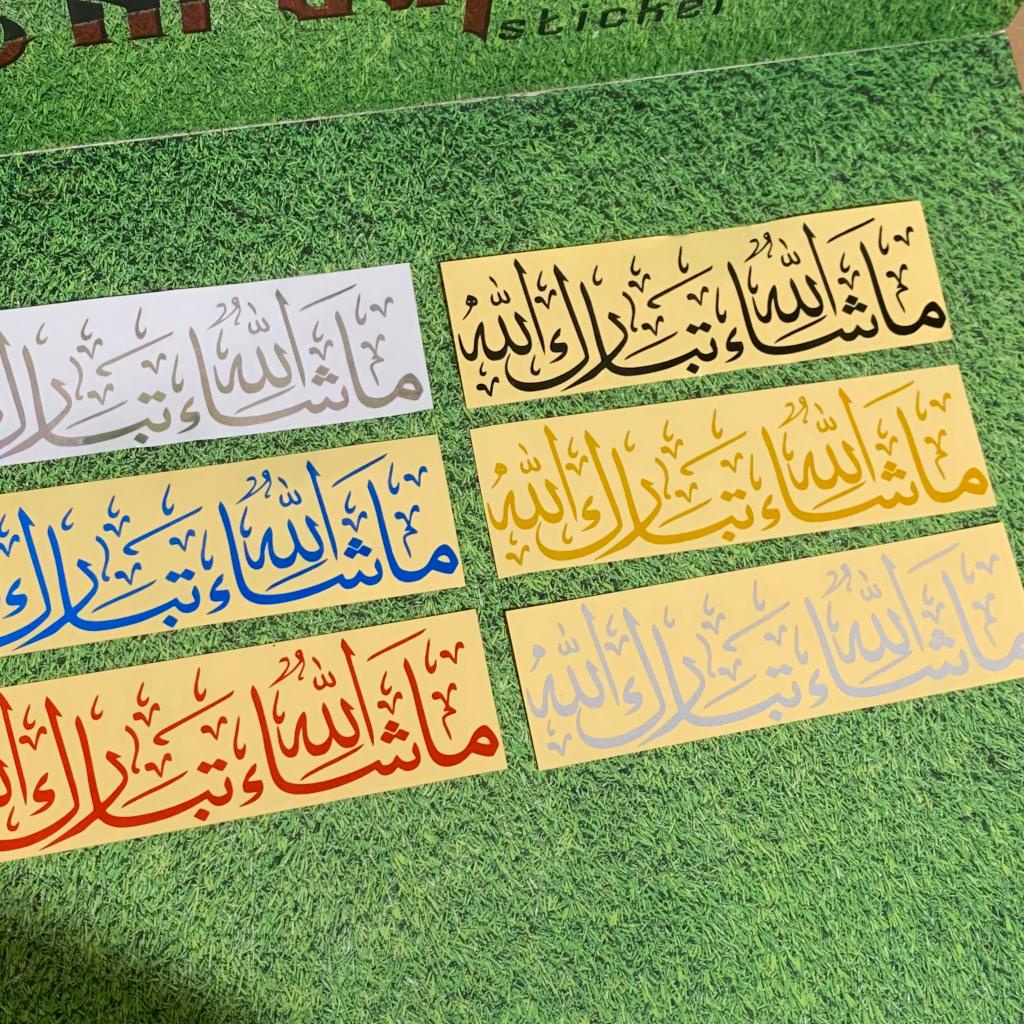 sticker
ما شاء الله تبارك
ما شاء الله تبارك الله
ما شاء الله تبارك
ما شاء الله تبارك الله
ما شاء الله تبارك
ما شاء الله تبارك الله